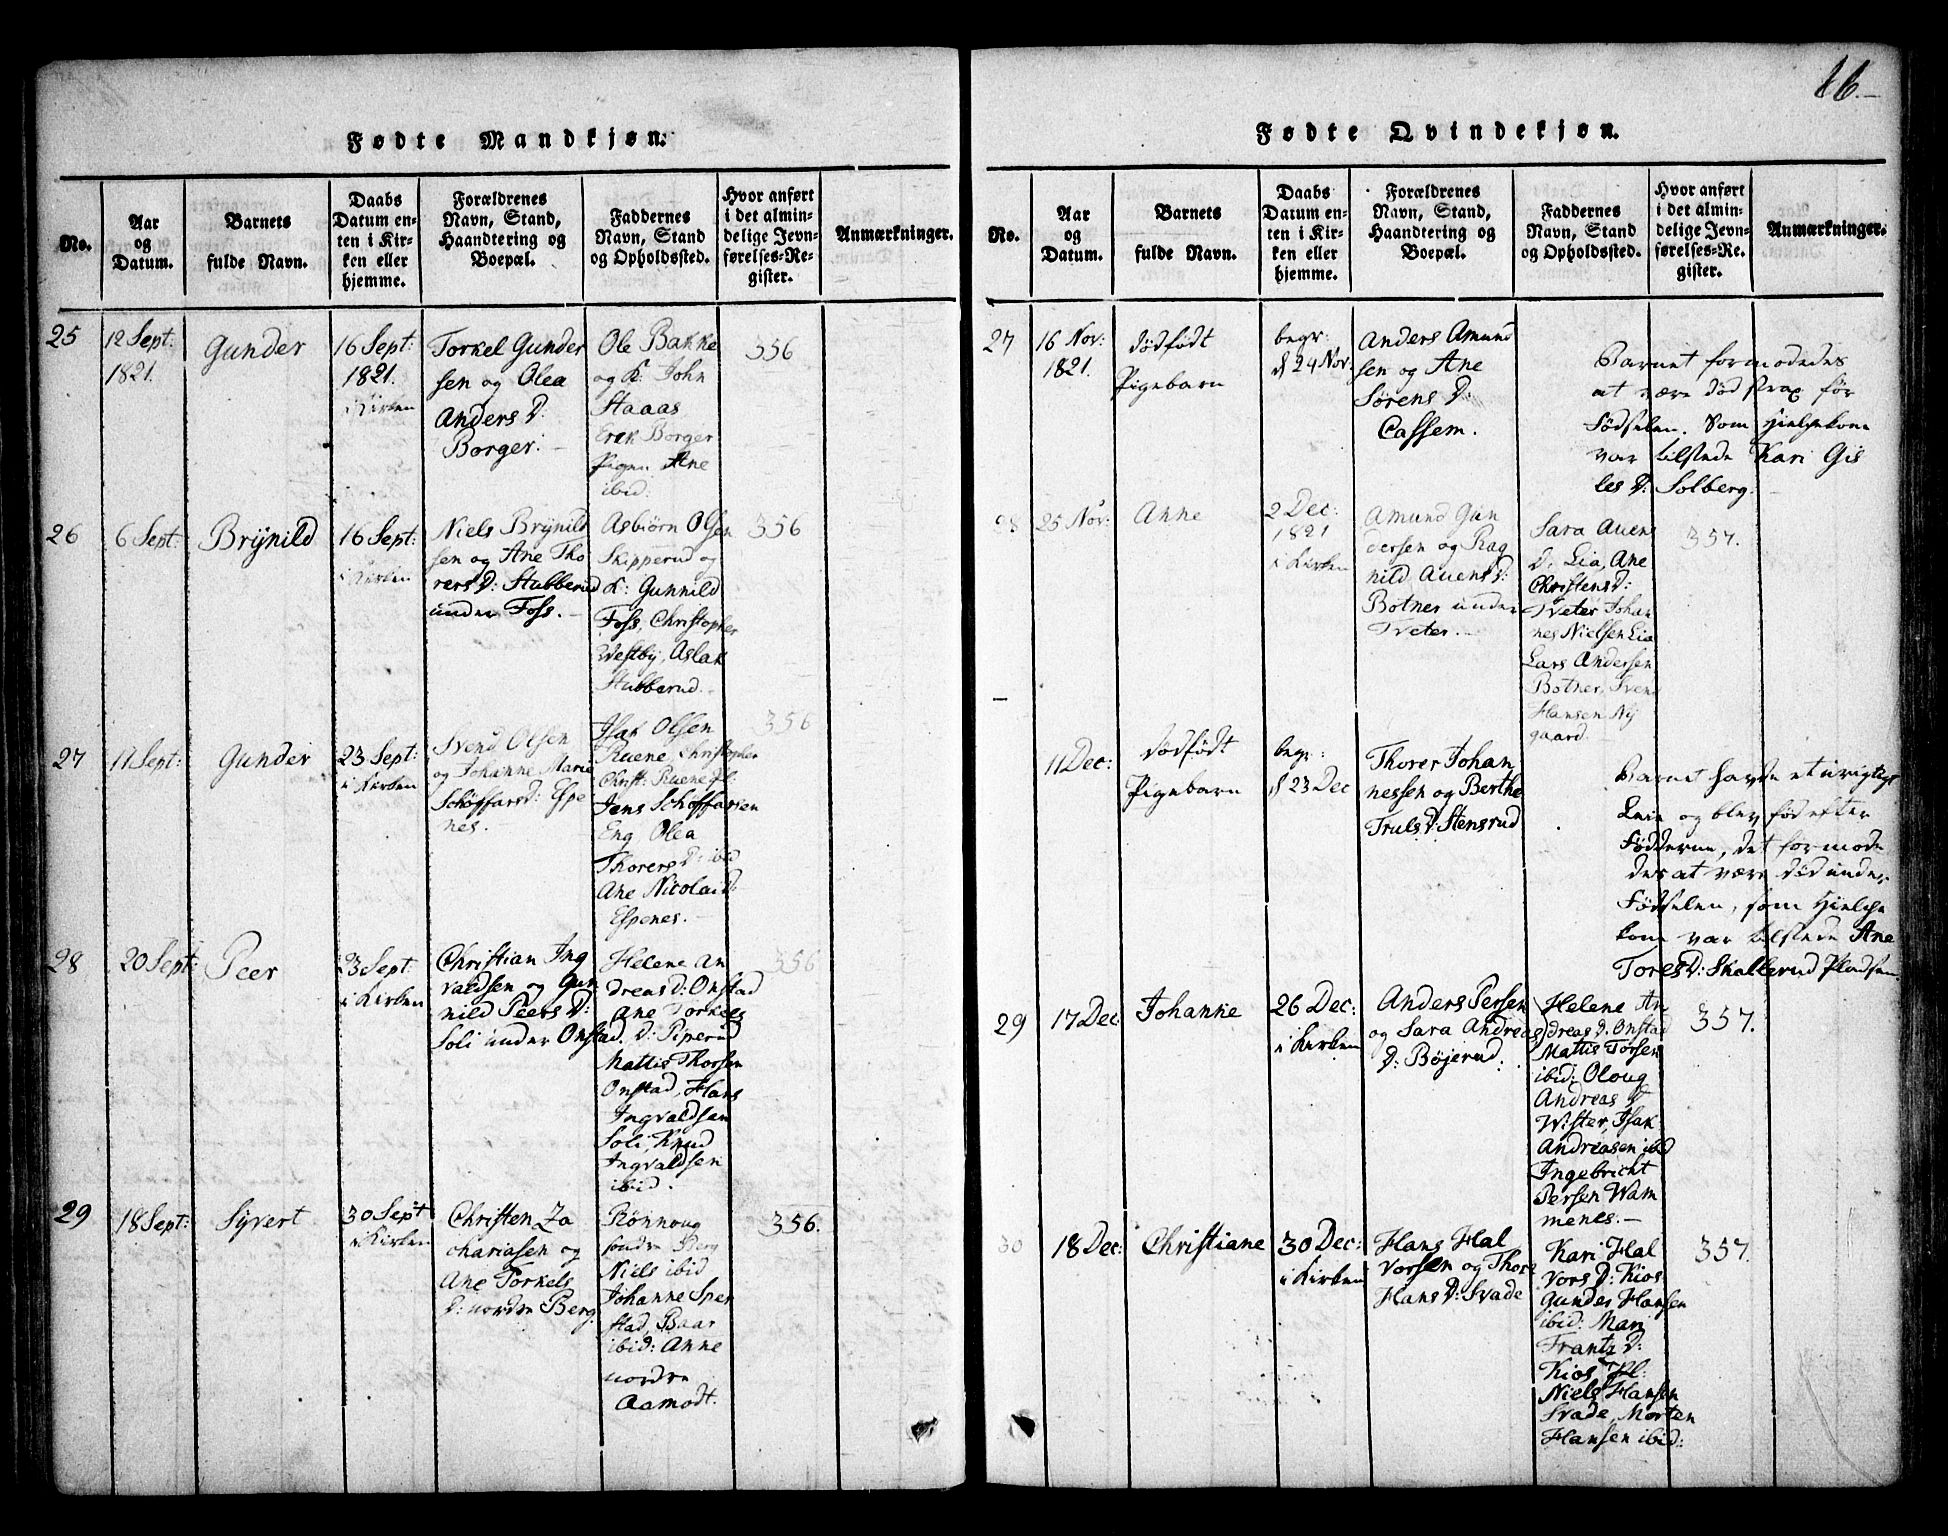 16.
Fødte Mandkjøn.
No.
Aar
og
Datum.
Barnets
fulde Navn.
Daabs
Datum en-
ten i Kir-
ken eller
hjemme.
Forældrenes
Navn, Stand,
Haandtering og
Boepæl.
Faddernes
Navn, Stand
og Opholdssted.
Hvor anført
i det almin-
delige Jevn-
førelses-Re-
gister.
Anmærkninger.
25
12 Sept:
1821.
Gunder
16 Sept:
1821.
i Kirken
Torkel Gunder
sen og Olea
Anders D:
Borger.
Ole Bakke
og K: John
Staaas
Erik Borger
Pigen Ane
ibid:
356
26
6 Sept:
Brÿnild
16 Sept:
i Kirken
Niels Brÿnild
sen og Ane Tho
rers D: Stubberud
under Foss.
Asbiørn Olsen
Skipperud og
K: Gunnild
Foss, Christopher
Westbÿ, Aslak
Stubberud.
356
27
11 Sept:
Gunder
23 Sept:
i Kirken
Svend Olsen
og Johanne Marie
Schöffars D: Espe
nes.
Isak Olsen
Ruene, Christopher
Christ: Ruene Pl:
Jens Schöffarsen
Eng Olea
Thorers D: ibid
Ane Nicolai D:
Espenes.
356
28
20 Sept:
Peer
23 Sept:
i Kirken
Christian Ing
valdsen og Gun
nild Peers D:
Soli under Onstad.
Helene An
dreas D: Onstad
Ane Torkels
D: Piperud
Mattis Thorsen
Onstad, Hans
Ingvaldsen
Soli, Knud
Ingvaldsen
ibid.
356
29
18 Sept:
Sÿvert
30 Sept
i Kirken
Christen Za
chariasen og
Ane Torkels
D: nordre Berg.
Rönnoug
søndre Berg
Niels ibid
Johanne Sper
stad, Baar
ibid: Anne
nordre
Aamodt.
356.
Fødte Qvindekjøn.
No.
Aar
og
Datum.
Barnets
fulde Navn.
Daabs
Datum en-
ten i Kir-
ken eller
hjemme.
Forældrenes
Navn, Stand,
Haandtering og
Boepæl.
Faddernes
Navn, Stand
og Opholdssted.
Hvor anført
i det almin-
delige Jevn-
førelses-Re-
gister.
Anmærkninger.
27
16 Nov:
1821.
dödfödt
Pigebarn
begr:
d 24 Nov:
Anders Amund
sen og Ane
Sörens D:
Cassem.
Barnet formodedes
at være død strax før
Fødselen. Som Hielpekone
var tilstede Kari Gis
les D: Solberg.
28
25 Nov:
Anne
2 Dec:
1821
i Kirken
Amund Gun
dersen og Rag
nild Auens D:
Botner under
Tveter.
Sara Auens
D. Lia, Ane
Christens D:
Tveter Johan
nes Nielsen Lia
Lars Andersen
Botner, Sven
Hansen Nÿ
gaard.
357.
11 Dec:
dödfödt
Pigebarn
begr:
d 23 Dec
Thorer Johan
nessen og Berthe
Truls D: Stensrud
Barnet havde et urigtigt
Leie og blev fød efter
Födderne, det formode
des at være død under
Fødselen, som Hielpe
kone var tilstede Ane
Tores D: Skallerud Pladsen
29
17 Dec:
Johanne
26 Dec:
i Kirken
Anders Persen
og Sara Andreas
D: Böjerud.
Helene An
dreas D: Onstad
Mattis Torsen
ibid: Oloug
Andreas D
Wister, Isak
Andreasen ibid
Ingebricht
Persen Wam
menes.
357.
30
18 Dec:
Christiane
30 Dec:
i Kirken
Hans Hal
vorsen og Thore
Hans D: Svade
Kari Hal
vors D: Kios
Gunder Hansen
ibid: Mari
Frantz D:
Kios Pl:
Niels Hansen
Svade, Morten
Hansen ibid:
357.